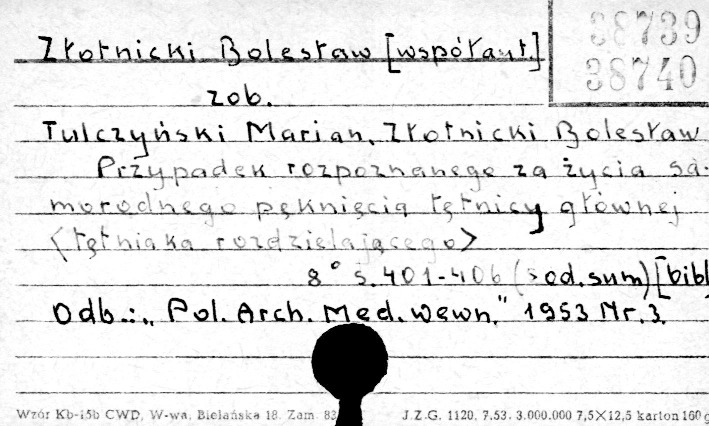 38739
38740
Złotnicki Bolesław [współaut.]
zob.
Tulczyński Marian, Złotnicki Bolesław
Przypadek rozpoznanego za życia sa-
morodnego pęknięcia tętnicy głównej
<tętniaka rozdzielającego>
8° s. 401-406 (sod. sum) [bibl
Odb.: „Pol. Arch. Med. wewn." 1953 Nr. 3.
Wzór Kb-15b CWD, W-wa, Bielańska 18. Zam. 83
J.Z.G. 1120. 7.53. 3.000.000 7,5×12,5 karton 160 g